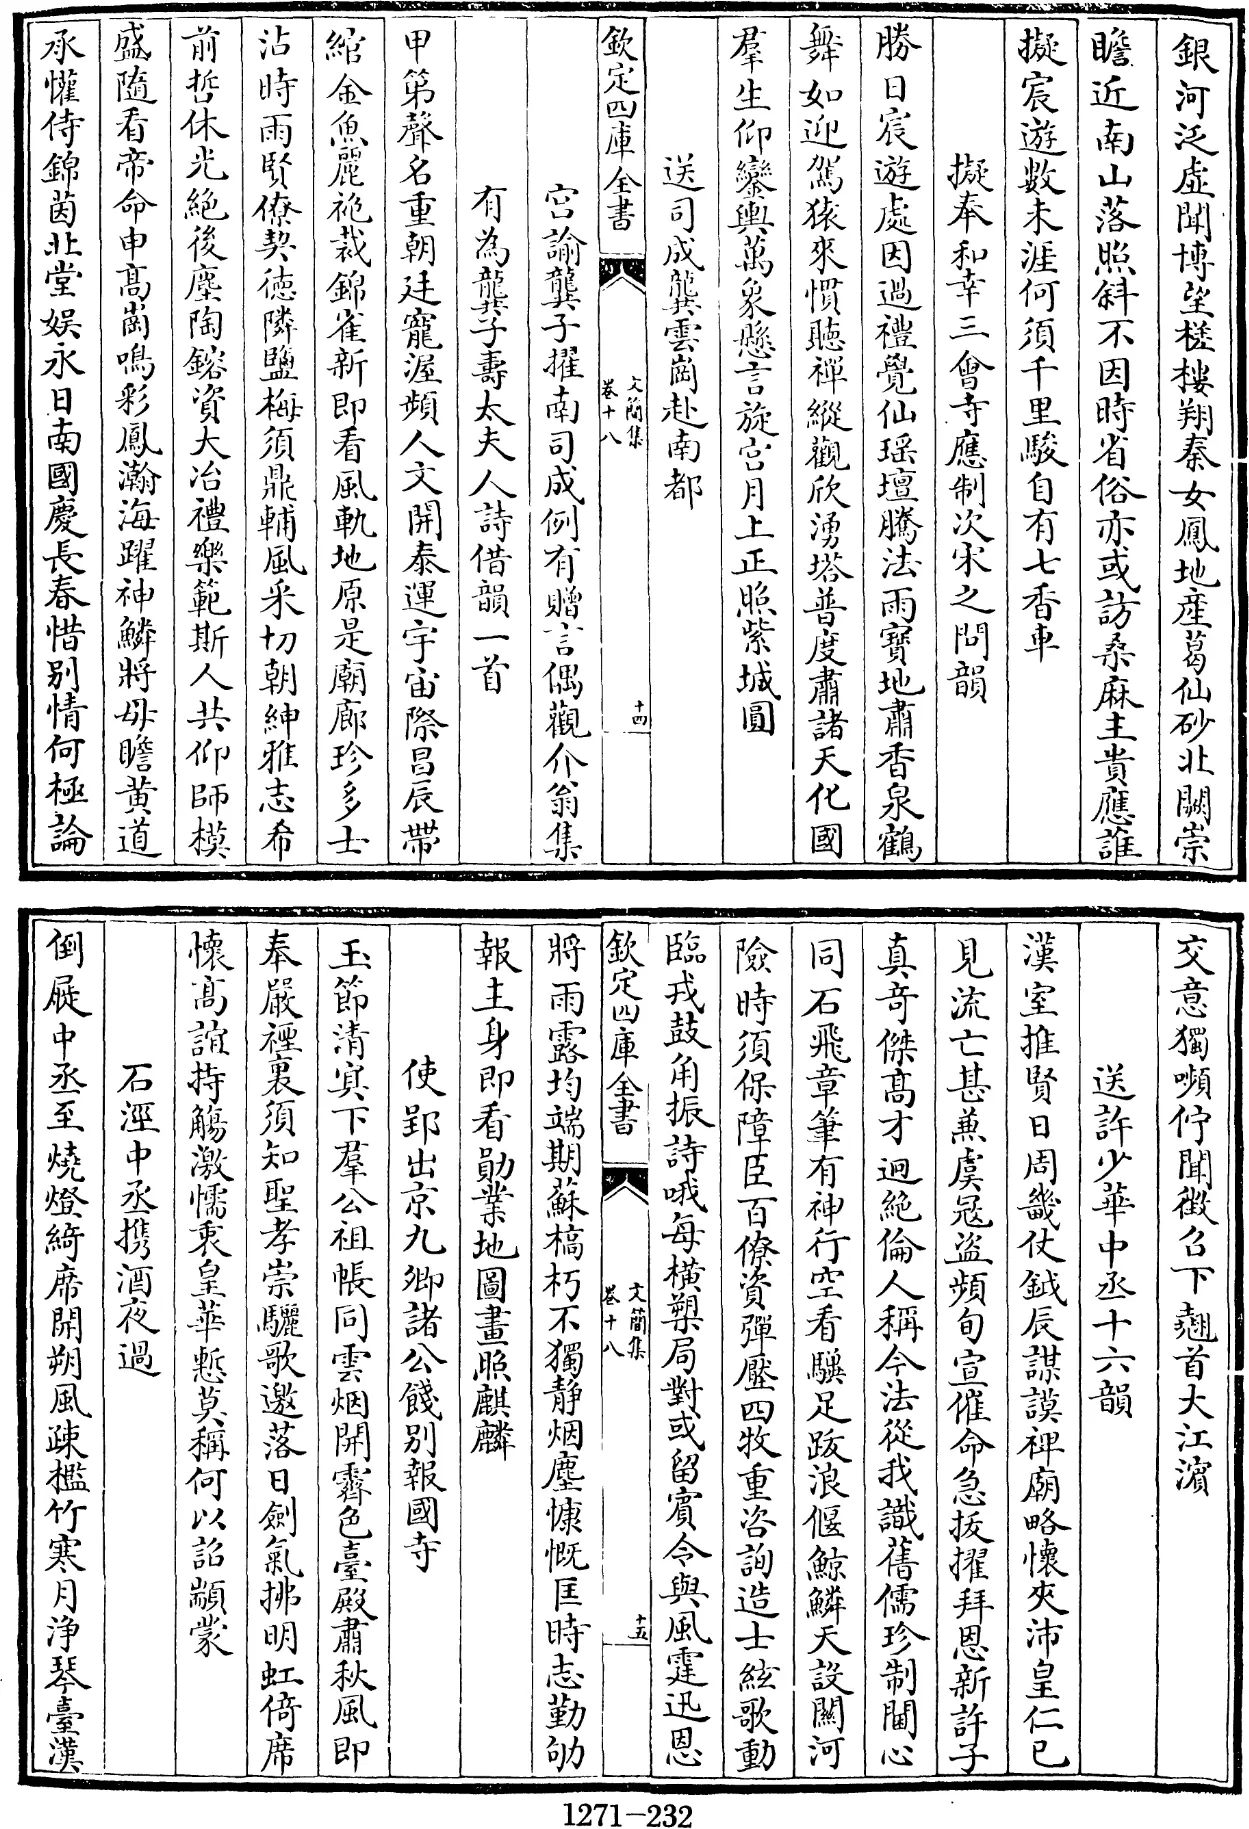 銀河泛虛聞博望槎樓翔秦女鳳地産葛仙砂北闕崇
瞻近南山落照斜不因時省俗亦或訪桑麻主貴應誰
擬宸遊數未涯何須千里駿自有七香車
擬奉和幸三會寺應制次宋之問韻
勝日宸遊處因過禮覺仙瑶壇騰法雨寳地肅香泉鶴
舞如迎駕猿來慣聽禪縱觀欣湧塔普度肅諸天化國
羣生仰鑾輿萬象懸言旋宫月上正照紫城圓
送司成龔雲崗赴南都
欽定四庫全書
文簡集
卷十八
十四
宫諭龔子擢南司成例有贈言偶觀介翁集
有為龔子壽太夫人詩借韻一首
甲第聲名重朝廷寵渥頻人文開泰運宇宙際昌辰帶
綰金魚麗袍裁錦雀新即看風軌地原是廟廊珍多士
沾時雨賢僚契徳隣鹽梅須鼎輔風采切朝紳雅志希
前哲休光絶後塵陶鎔資大冶禮樂範斯人共仰師模
盛隨看帝命申髙崗鳴彩鳳瀚海躍神鱗將母瞻黄道
承懽侍錦茵北堂娱永日南國慶長春惜别情何極論
交意獨嚬佇聞徴召下翹首大江濱
送許少華中丞十六韻
漢室推賢日周畿仗鉞辰謀謨禆廟略懷夾沛皇仁已
見流亡甚兼虞冦盗頻旬宣催命急拔擢拜恩新許子
真奇傑髙才迥絶倫人稱今法從我識舊儒珍制閫心
同石飛章筆有神行空看驥足跋浪偃鯨鱗天設關河
險時須保障臣百僚資彈壓四牧重咨詢造士絃歌動
臨戎鼓角振詩哦每横槊局對或留賓令與風霆迅恩
欽定四庫全書
文簡集
卷十八
十五
將雨露均端期蘇槁朽不獨静烟塵慷慨匡時志勤劬
報主身即看勛業地圖畫照麒麟
使郢出京九卿諸公餞别報國寺
玉節清寅下羣公祖帳同雲烟開霽色臺殿肅秋風即
奉嚴禋裏須知聖孝崇驪歌邀落日劍氣拂明虹倚席
懷髙誼持觴激懦衷皇華慙莫稱何以詔顓蒙
石涇中丞携酒夜過
倒屣中丞至燒燈綺席開朔風疎檻竹寒月浄琴臺漢
1271-232